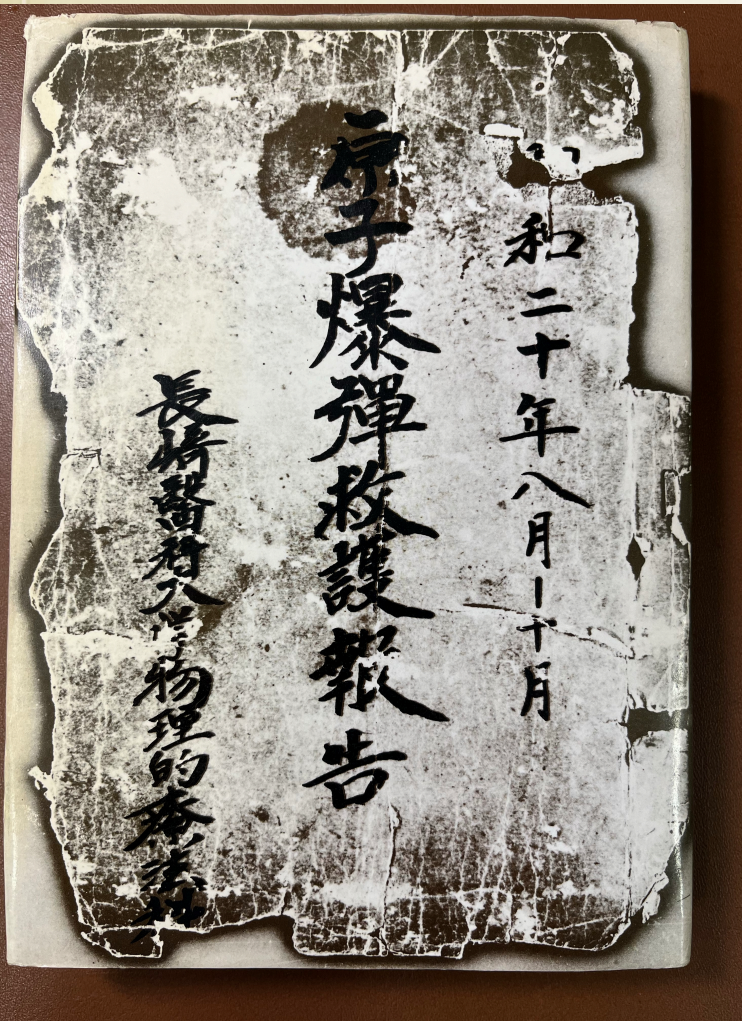 和二十年八月ー十月
原子爆彈救護報告
長崎醫科大学物理的療法科